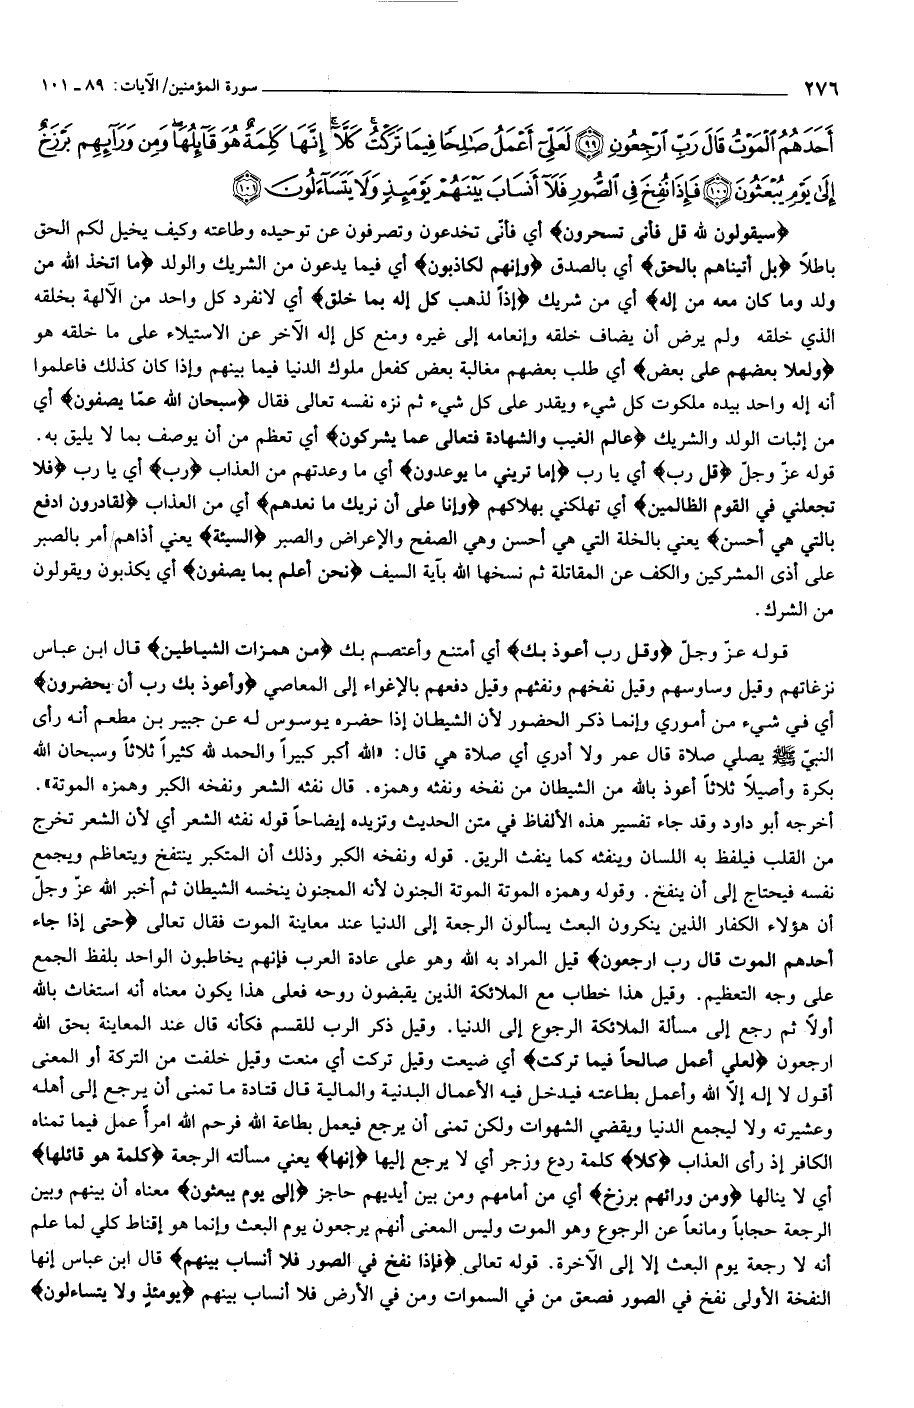 ٢٧٦ سورة المؤمنين/ الآيات: ٨٩ - ١٠١
أَحَدَهُمُ ٱلْمَوْتُ قَالَ رَبِّ ٱرْجِعُونِ ٩٩ لَعَلِّىٓ أَعْمَلُ صَٰلِحًا فِيمَا تَرَكْتُ كَلَّآ إِنَّهَا كَلِمَةٌ هُوَ قَآئِلُهَا وَمِن وَرَآئِهِم بَرْزَخٌ
إِلَىٰ يَوْمِ يُبْعَثُونَ ١٠٠ فَإِذَا نُفِخَ فِى ٱلصُّورِ فَلَآ أَنسَابَ بَيْنَهُمْ يَوْمَئِذٍ وَلَا يَتَسَآءَلُونَ ١٠١
﴿سيقولون لله قل فأنى تسحرون﴾ أي فأنّى تخدعون وتصرفون عن توحيده وطاعته وكيف يخيل لكم الحق
باطلاً ﴿بل أتيناهم بالحق﴾ أي بالصدق ﴿وإنهم لكاذبون﴾ أي فيما يدعون من الشريك والولد ﴿ما اتخذ الله من
ولد وما كان معه من إله﴾ أي من شريك ﴿إذاً لذهب كل إله بما خلق﴾ أي لانفرد كل واحد من الآلهة بخلقه
الذي خلقه ولم يرض أن يضاف خلقه وإنعامه إلى غيره ومنع كل إله الآخر عن الاستيلاء على ما خلقه هو
﴿ولعلا بعضهم على بعض﴾ أي طلب بعضهم مغالبة بعض كفعل ملوك الدنيا فيما بينهم وإذا كان كذلك فاعلموا
أنه إله واحد بيده ملكوت كل شيء ويقدر على كل شيء ثم نزه نفسه تعالى فقال ﴿سبحان الله عمّا يصفون﴾ أي
من إثبات الولد والشريك ﴿عالم الغيب والشهادة فتعالى عما يشركون﴾ أي تعظم من أن يوصف بما لا يليق به.
قوله عزّ وجلّ ﴿قل رب﴾ أي يا رب ﴿إما تريني ما يوعدون﴾ أي ما وعدتهم من العذاب ﴿رب﴾ أي يا رب ﴿فلا
تجعلني في القوم الظالمين﴾ أي تهلكني بهلاكهم ﴿وإنا على أن نريك ما نعدهم﴾ أي من العذاب ﴿لقادرون ادفع
بالتي هي أحسن﴾ يعني بالخلة التي هي أحسن وهي الصفح والإعراض والصبر ﴿السيئة﴾ يعني أذاهم أمر بالصبر
على أذى المشركين والكف عن المقاتلة ثم نسخها الله بآية السيف ﴿نحن أعلم بما يصفون﴾ أي يكذبون ويقولون
من الشرك.
قوله عزّ وجلّ ﴿وقل رب أعوذ بك﴾ أي أمتنع وأعتصم بك ﴿من همزات الشياطين﴾ قال ابن عباس
نزغاتهم وقيل وساوسهم وقيل نفخهم ونفثهم وقيل دفعهم بالإغواء إلى المعاصي ﴿وأعوذ بك رب أن يحضرون﴾
أي في شيء من أموري وإنما ذكر الحضور لأن الشيطان إذا حضره يوسوس له عن جبير بن مطعم أنه رأى
النبيّ ﷺ يصلي صلاة قال عمر ولا أدري أي صلاة هي قال: «الله أكبر كبيراً والحمد لله كثيراً ثلاثاً وسبحان الله
بكرة وأصيلاً ثلاثاً أعوذ بالله من الشيطان من نفخه ونفثه وهمزه. قال نفثه الشعر ونفخه الكبر وهمزه الموتة».
أخرجه أبو داود وقد جاء تفسير هذه الألفاظ في متن الحديث وتزيده إيضاحاً قوله نفثه الشعر أي لأن الشعر تخرج
من القلب فيلفظ به اللسان وينفثه كما ينفث الريق. قوله ونفخه الكبر وذلك أن المتكبر ينتفخ ويتعاظم ويجمع
نفسه فيحتاج إلى أن ينفخ. وقوله وهمزه الموتة الموتة الجنون لأنه المجنون ينخسه الشيطان ثم أخبر الله عزّ وجلّ
أن هؤلاء الكفار الذين ينكرون البعث يسألون الرجعة إلى الدنيا عند معاينة الموت فقال تعالى ﴿حتى إذا جاء
أحدهم الموت قال رب ارجعون﴾ قيل المراد به الله وهو على عادة العرب فإنهم يخاطبون الواحد بلفظ الجمع
على وجه التعظيم. وقيل هذا خطاب مع الملائكة الذين يقبضون روحه فعلى هذا يكون معناه أنه استغاث بالله
أولاً ثم رجع إلى مسألة الملائكة الرجوع إلى الدنيا. وقيل ذكر الرب للقسم فكأنه قال عند المعاينة بحق الله
ارجعون ﴿لعلي أعمل صالحاً فيما تركت﴾ أي ضيعت وقيل تركت أي منعت وقيل خلفت من التركة أو المعنى
أقول لا إله إلاّ الله وأعمل بطاعته فيدخل فيه الأعمال البدنية والمالية قال قتادة ما تمنى أن يرجع إلى أهله
وعشيرته ولا ليجمع الدنيا ويقضي الشهوات ولكن تمنى أن يرجع فيعمل بطاعة الله فرحم الله امرأ عمل فيما تمناه
الكافر إذ رأى العذاب ﴿كلا﴾ كلمة ردع وزجر أي لا يرجع إليها ﴿إنها﴾ يعني مسألته الرجعة ﴿كلمة هو قائلها﴾
أي لا ينالها ﴿ومن ورائهم برزخ﴾ أي من أمامهم ومن بين أيديهم حاجز ﴿إلى يوم يبعثون﴾ معناه أن بينهم وبين
الرجعة حجاباً ومانعاً عن الرجوع وهو الموت وليس المعنى أنهم يرجعون يوم البعث وإنما هو إقناط كلي لما علم
أنه لا رجعة يوم البعث إلا إلى الآخرة. قوله تعالى ﴿فإذا نفخ في الصور فلا أنساب بينهم﴾ قال ابن عباس إنها
النفخة الأولى نفخ في الصور فصعق من في السموات ومن في الأرض فلا أنساب بينهم ﴿يومئذٍ ولا يتساءلون﴾